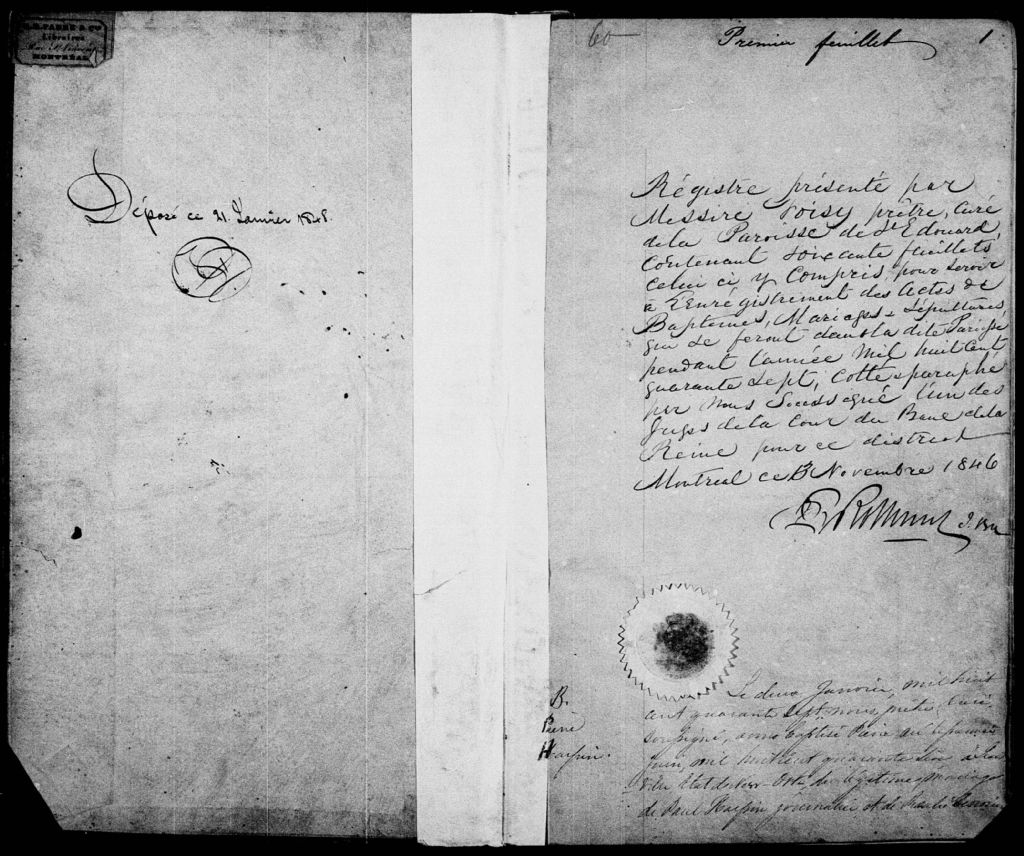 & Cie
Libraires
MONTRÉAL
Déposé ce 21. Janvier 1848.
60
Premier feuillet
1
Régistre présenté par
Messire Voisy prêtre, Curé
de la Paroisse de St Edouard,
Contenant Soixante feuillets
Celui ci y Compris, pour Servir
à L'Enregistrement des Actes de
Baptemes, Mariages & Sépultures,
qui Se feront dans la dite Paroisse
pendant L'année Mil huit Cent
quarante Sept, Cotté & paraphé
par Nous Soussigné L'un des
Juges de la Cour du Banc de la
Reine pour ce district
Montreal ce 13 Novembre 1846
B.
Pierre
Harpin.
Le deux Janvier, mil huit
cent quarante Sept, nous, prêtre, Curé
soussigné, avons baptisé Pierre né le
Juin, mil huit cent quarante
État de New du légitime mariage
de Paul Harpin journalier et de